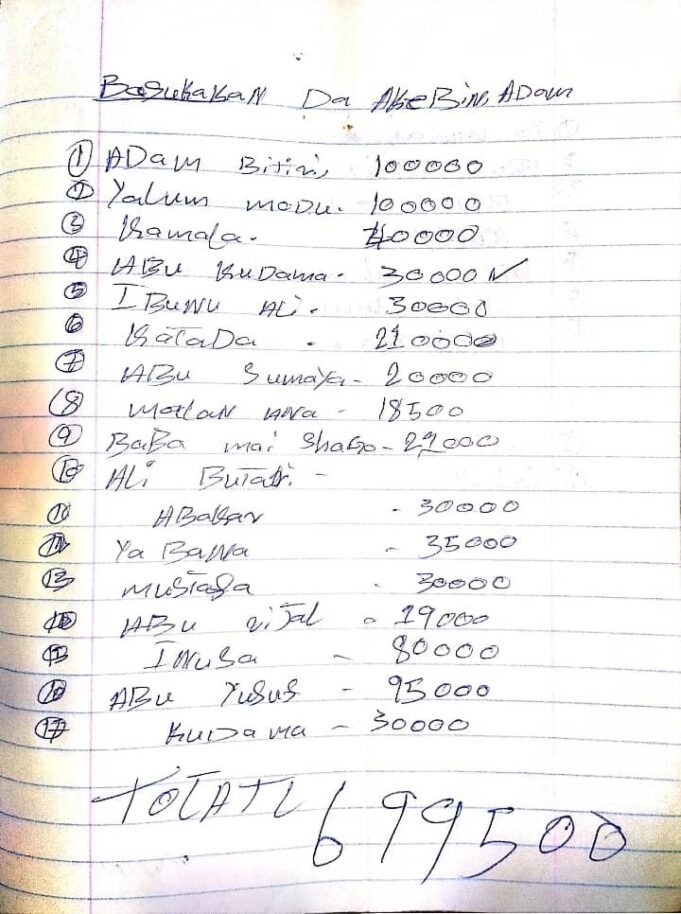 BaSUKAKAN Da AKEBini ADam
1 ADam Bitiri, 100000
2 Yalum moDu. 100000
3 Kamala. 40000
4 ABU KUDama. 30000 N ✓
5 IBUNU ALi. 30000
6 KATADa . 210000
7 ABU Sumaya - 20000
8 mallan - 18500
9 BaBa mai Shago - 22000
10 ALi BUTati -
11 ABaKan - 30000
12 Ya BaWa - 35000
13 mustafa - 30000
14 ABU - 19000
15 INUSa - 80000
16 ABU YUSUS - 95000
17 KUDama - 30000
TOTATL 699500